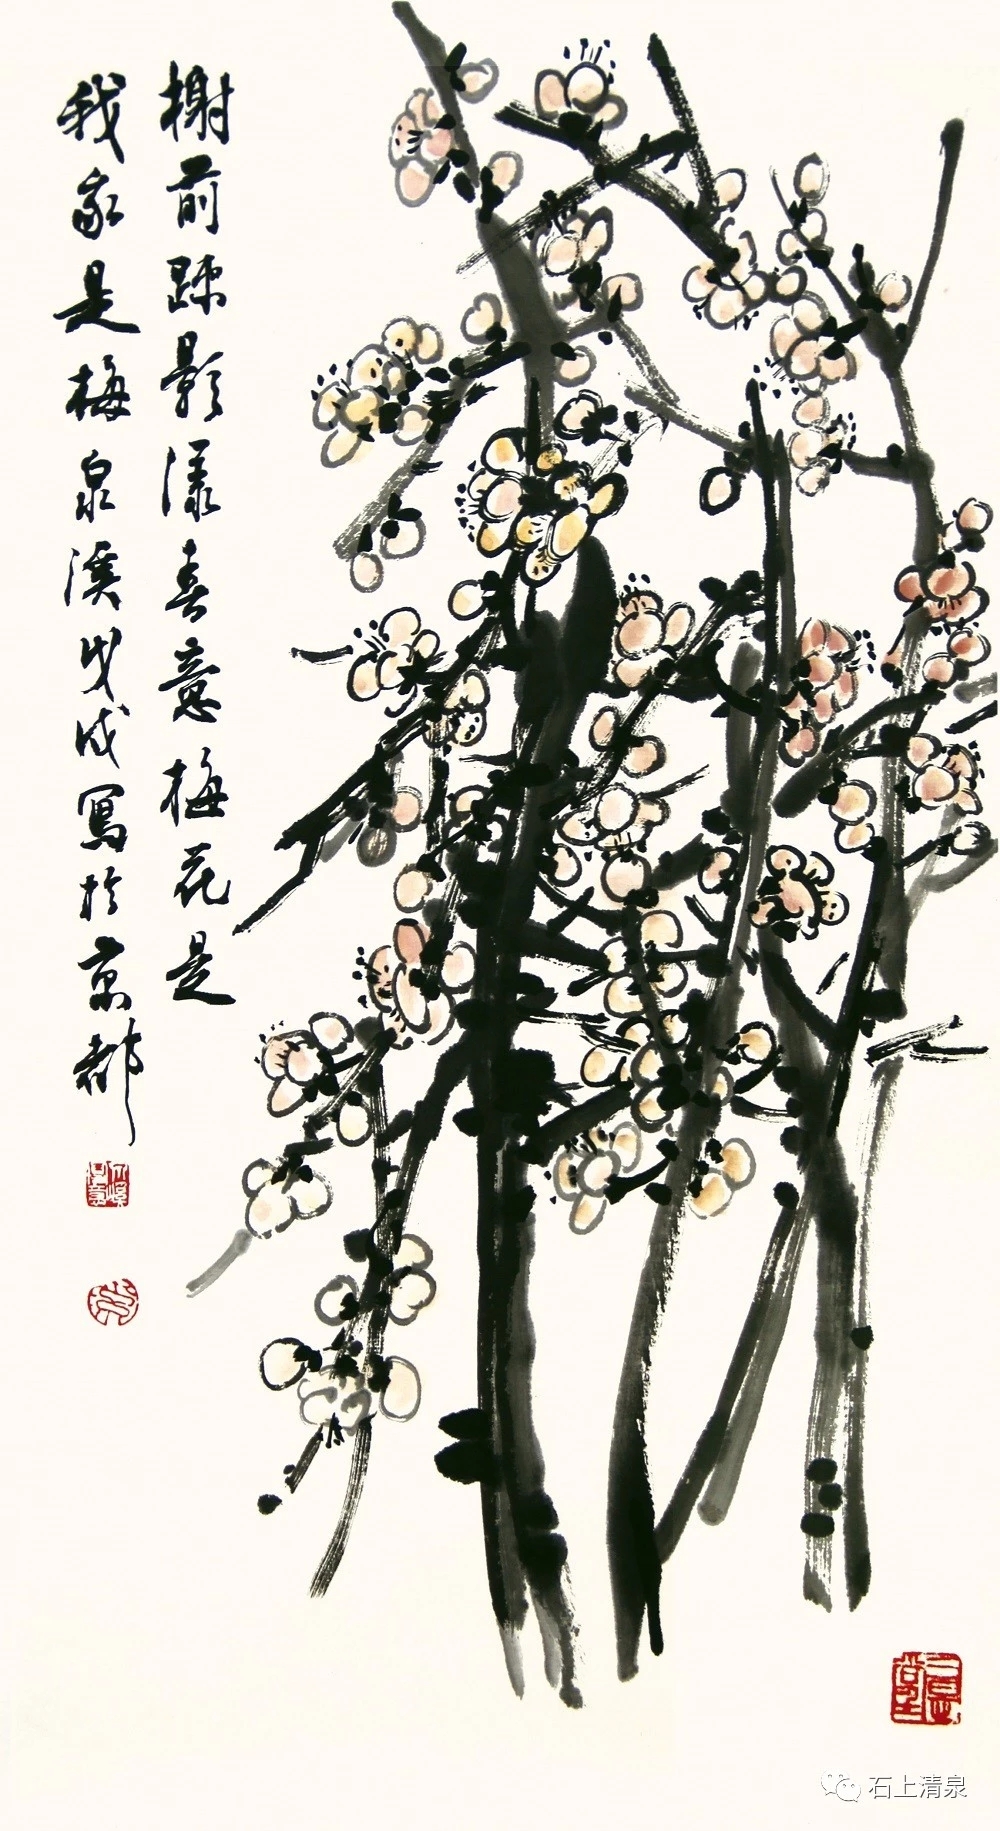 榭前踈影漾春意梅花是
我家是梅泉溪戊戌寫於京都
石上清泉